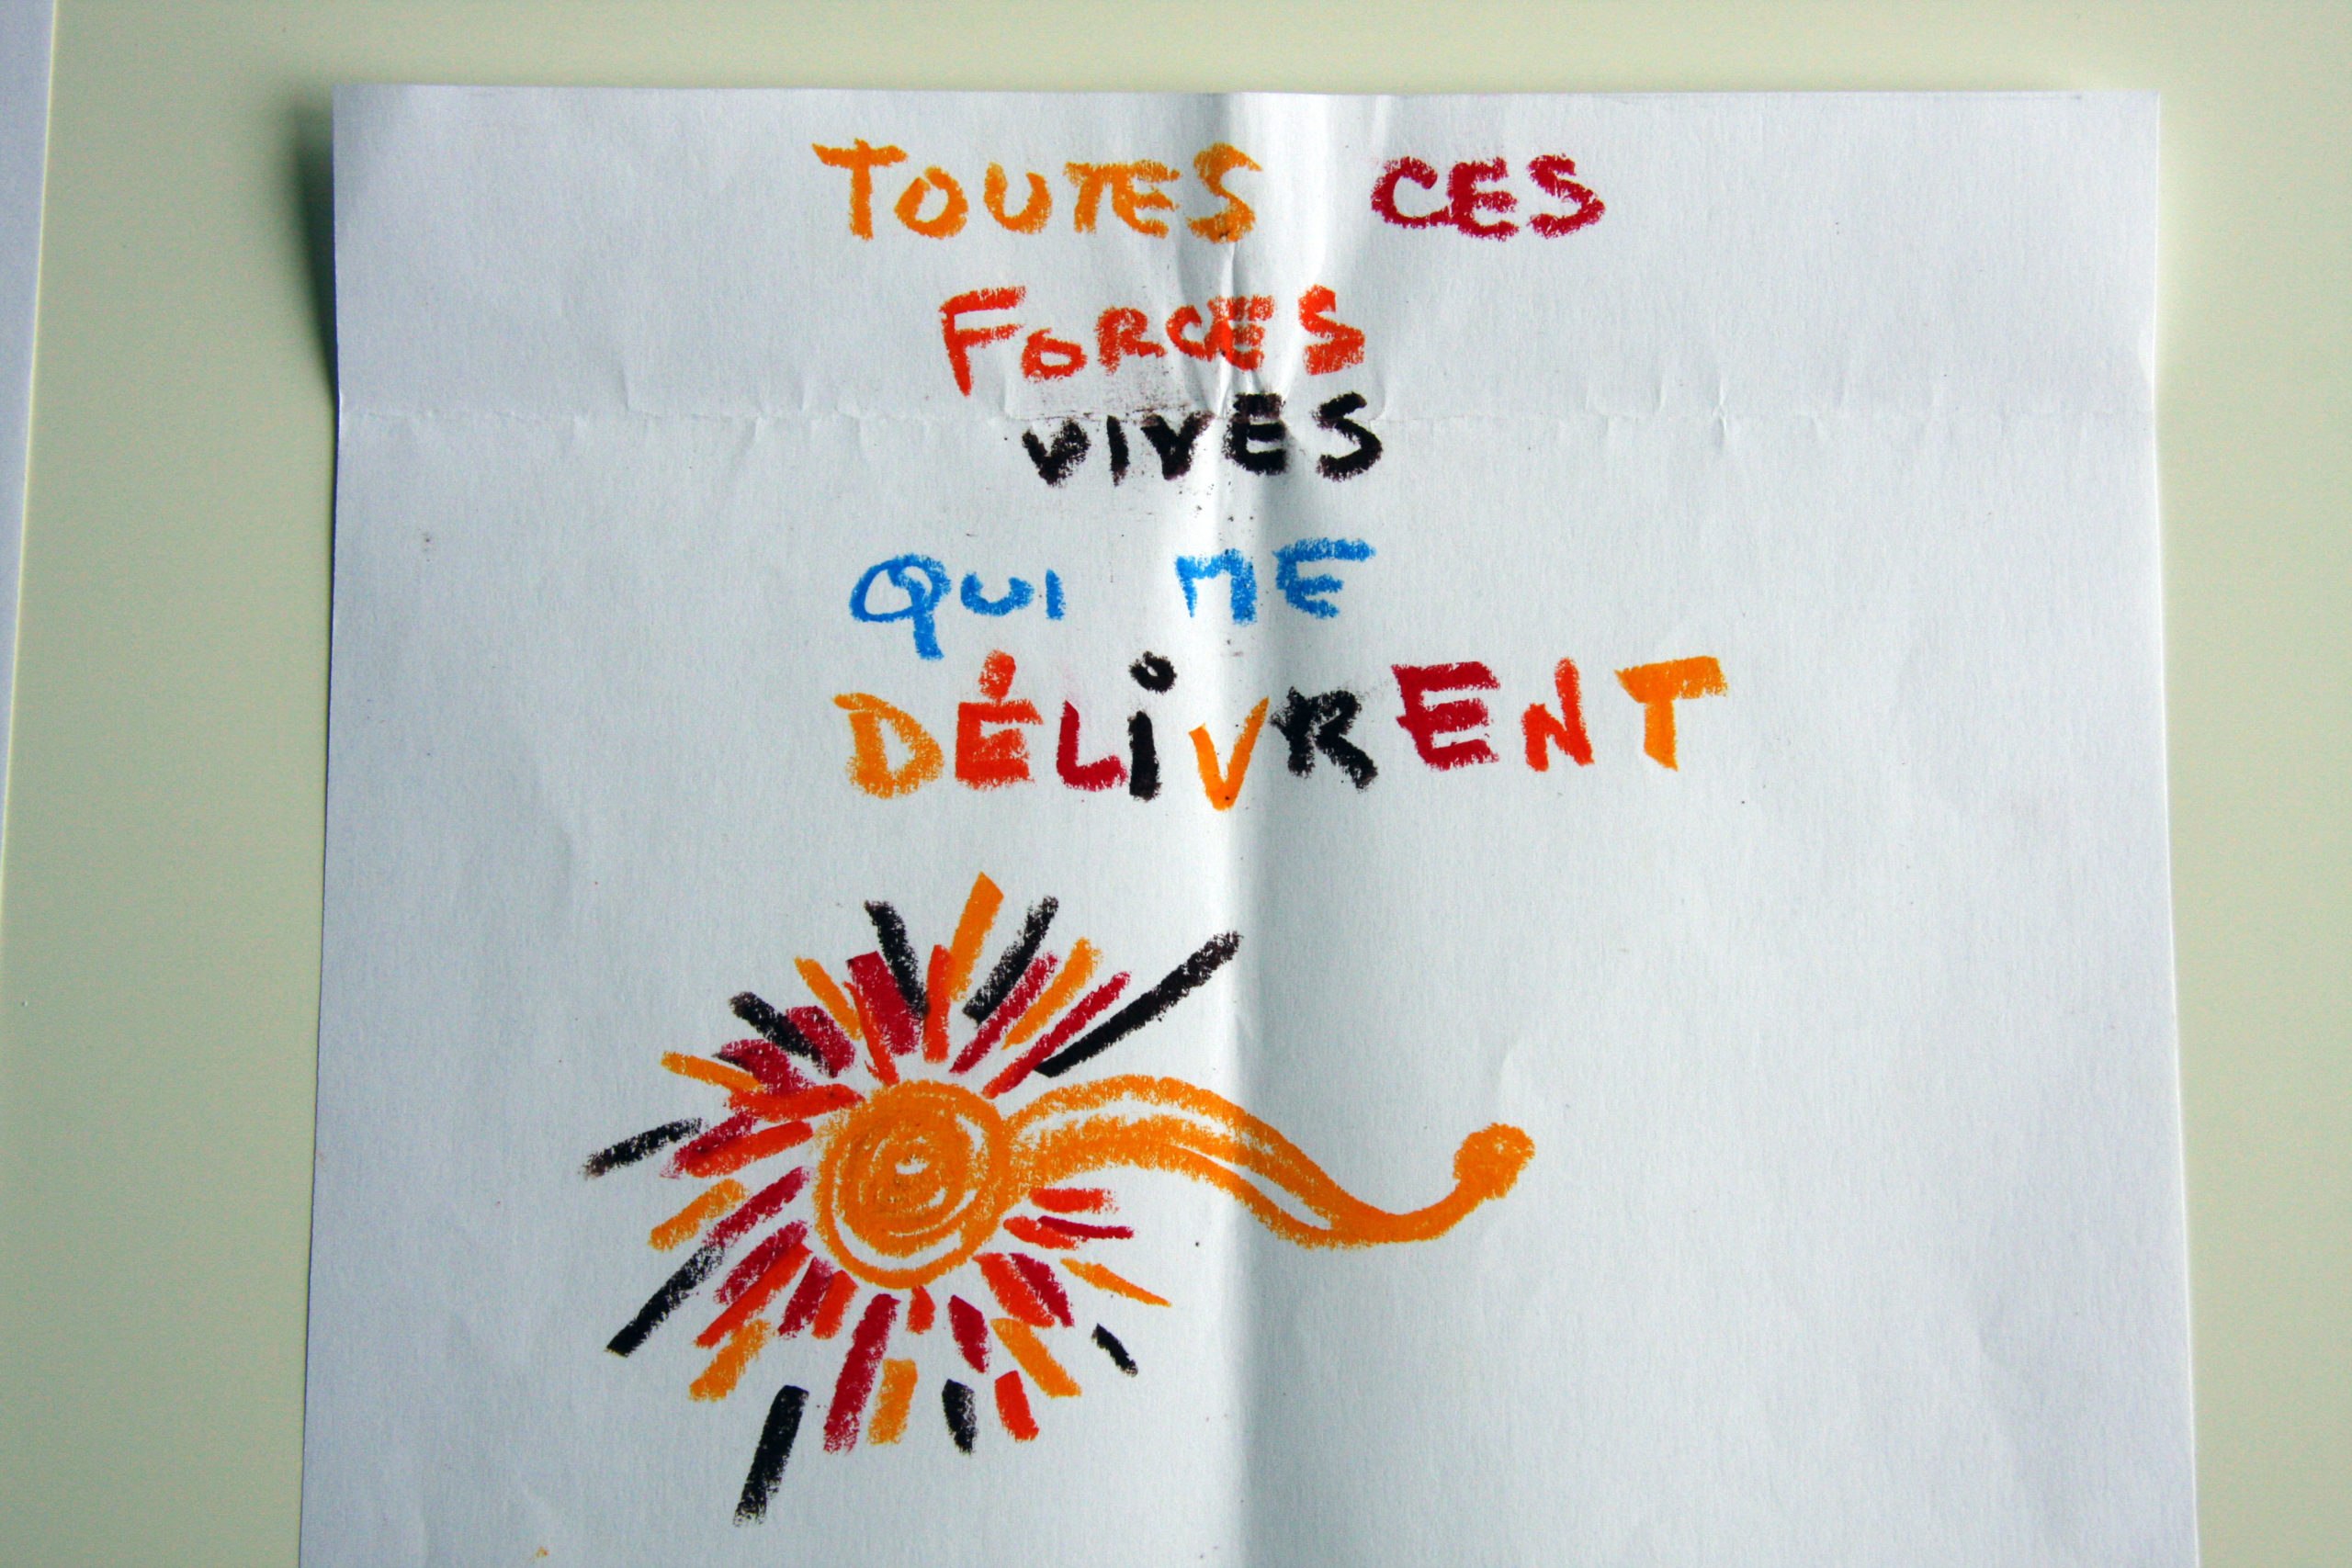 TOUTES CES
FORCES
VIVES
QUI ME
DÉLiVRENT